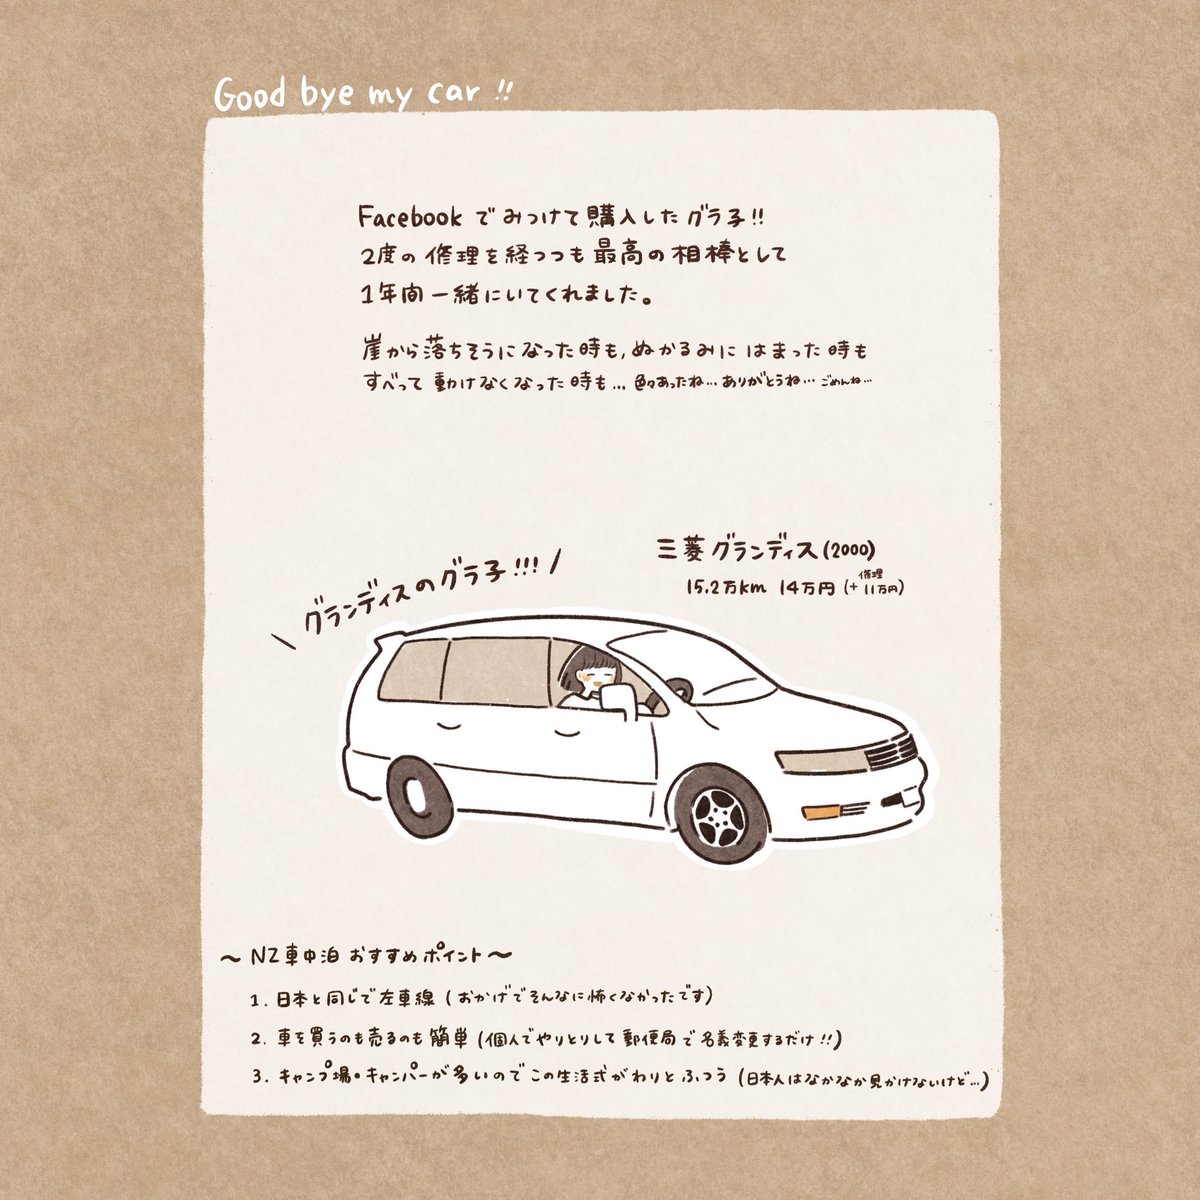 Good bye my car !!
Facebook でみつけて購入したグラ子!!
2度の修理を経つつも最高の相棒として
1年間一緒にいてくれました。
崖から落ちそうになった時も,ぬかるみにはまった時も
すべって動けなくなった時も... 色々あったね... ありがとうね... ごめんね...
三菱グランディス(2000)
修理
15.2万km 14万円 (+11万円)
\ グランディスのグラ子!!! /
〜 NZ車中泊おすすめポイント 〜
1. 日本と同じで左車線 (おかげでそんなに怖くなかったです)
2. 車を買うのも売るのも簡単 (個人でやりとりして郵便局で名義変更するだけ!!)
3. キャンプ場・キャンパーが多いのでこの生活式がわりとふつう (日本人はなかなか見かけないけど...)